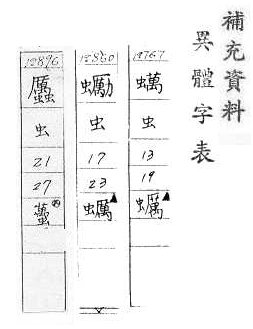 補充資料
異體字表
12767
蠇
虫
13
19
蠣
12860
虫
17
23
蠣
12896
虫
21
27